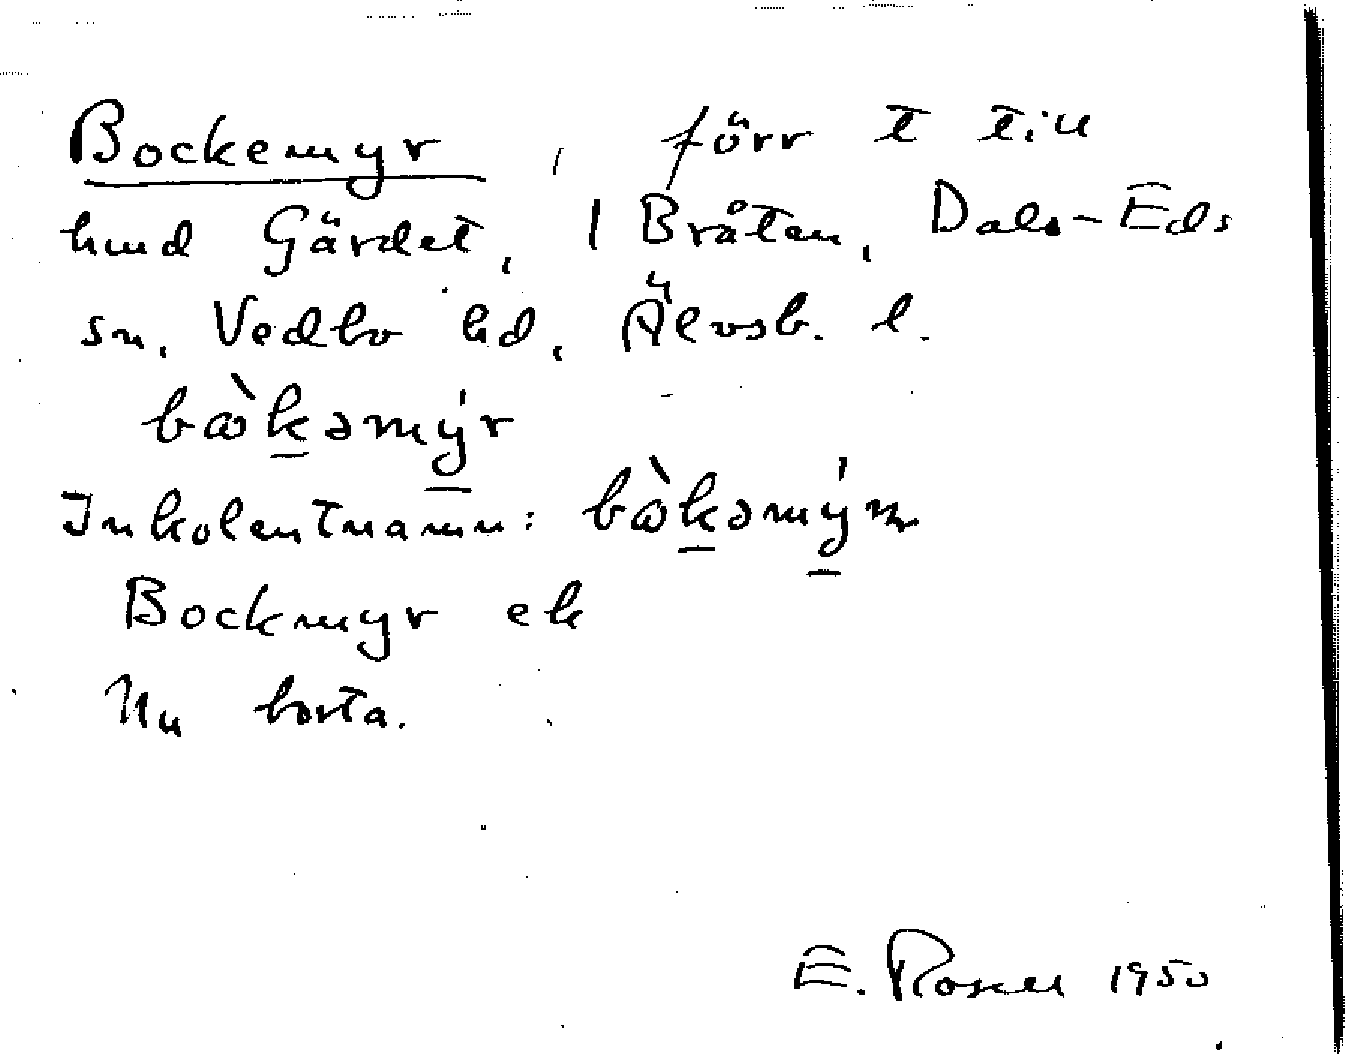 Bockemyr, förr t till
hmd Gärdet, 1 Bråten, Dals-Eds
sn, Vedbo hd, Älvsb. l.
bòkəmýr
Inkolentnamn: bòkəmýrn
Bockmyr ek
Nu borta.
E. Rosen 1950